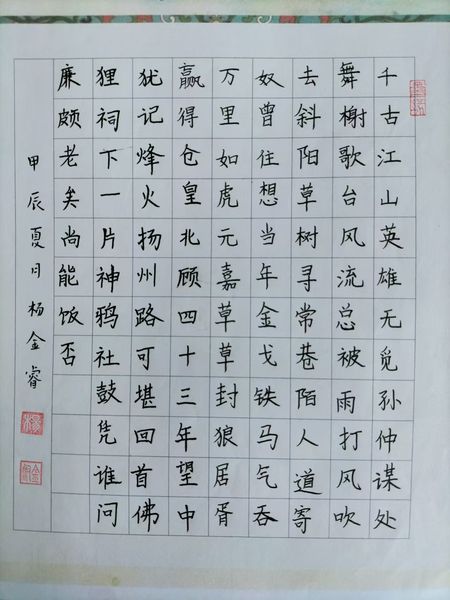 千古江山英雄无觅孙仲谋处
舞榭歌台风流总被雨打风吹
去斜阳草树寻常巷陌人道寄
奴曾住想当年金戈铁马气吞
万里如虎元嘉草草封狼居胥
赢得仓皇北顾四十三年望中
犹记烽火扬州路可堪回首佛
狸祠下一片神鸦社鼓凭谁问
廉颇老矣尚能饭否
甲辰夏月杨金睿